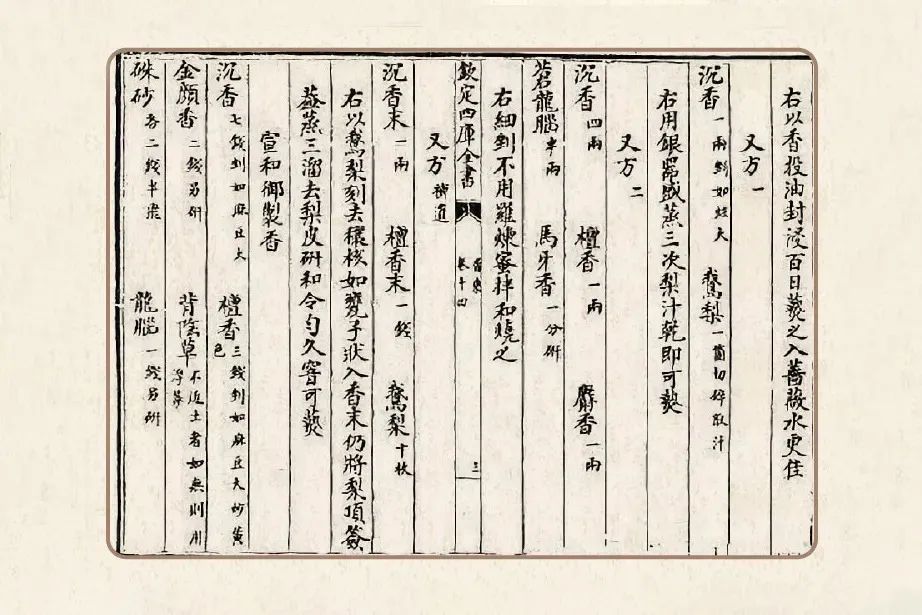 右以香投油封浸百日爇之入薔薇水更佳
又方一
沉香一兩剉如炷大　鵝梨一箇切碎取汁
右用銀器盛蒸三次梨汁乾即可爇
又方二
沉香四兩　檀香一兩　麝香一兩
蒼龍腦半兩　馬牙香一分研
右細剉不用羅煉蜜拌和燒之
欽定四庫全書　香乘　卷十四　三
又方補遺
沉香末一兩　檀香末一錢　鵝梨十枚
右以鵝梨刻去穰核如甕子狀入香末仍將梨頂簽
蓋蒸三溜去梨皮研和令勻久窨可爇
宣和御製香
沉香七錢剉如麻豆大　檀香三錢剉如麻豆大炒黃色
金顏香二錢另研　背陰草不近土者如無則用浮萍
硃砂各二錢半飛　龍腦一錢另研